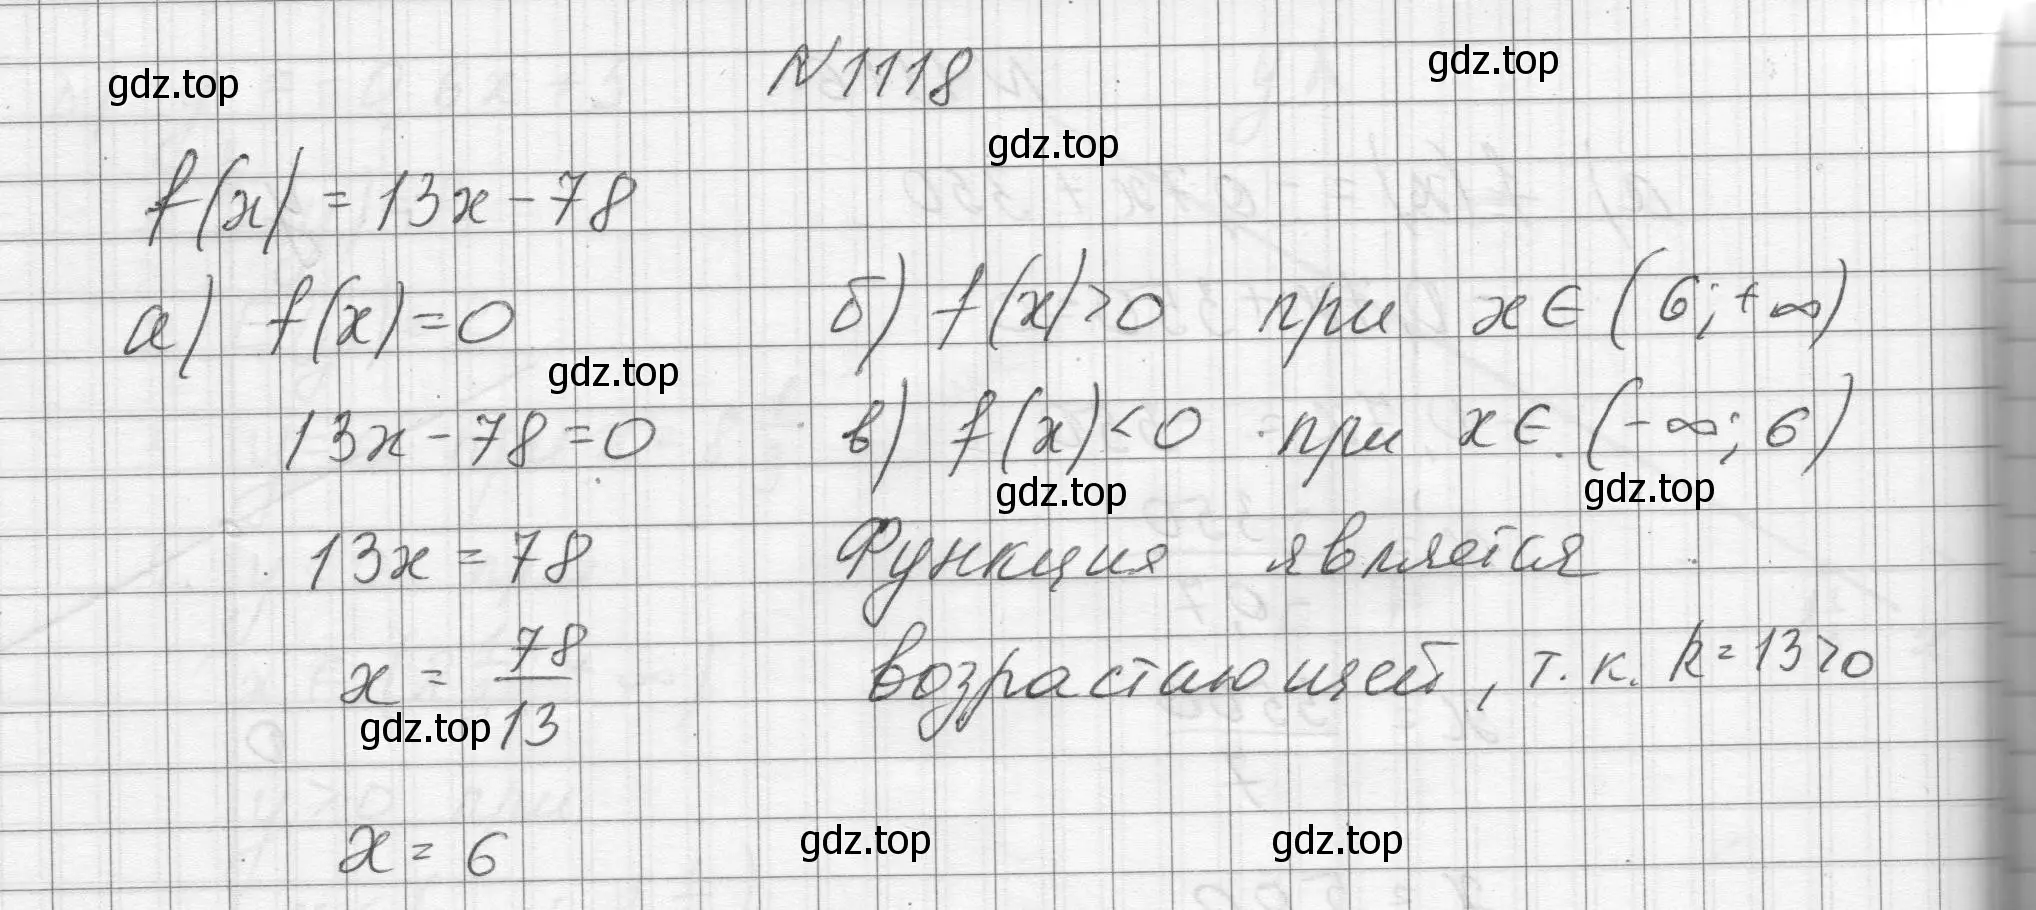 N 1118
f(x) = 13x - 78
а) f(x) = 0
13x - 78 = 0
13x = 78
x = 78/13
x = 6
б) f(x) > 0 при x ∈ (6; +∞)
в) f(x) < 0 при x ∈ (-∞; 6)
Функция является
возрастающей, т.к. k = 13 > 0
gdz.top
gdz.top
gdz.top
gdz.top
gdz.top
gdz.top
gdz.top
gdz.top
gdz.top